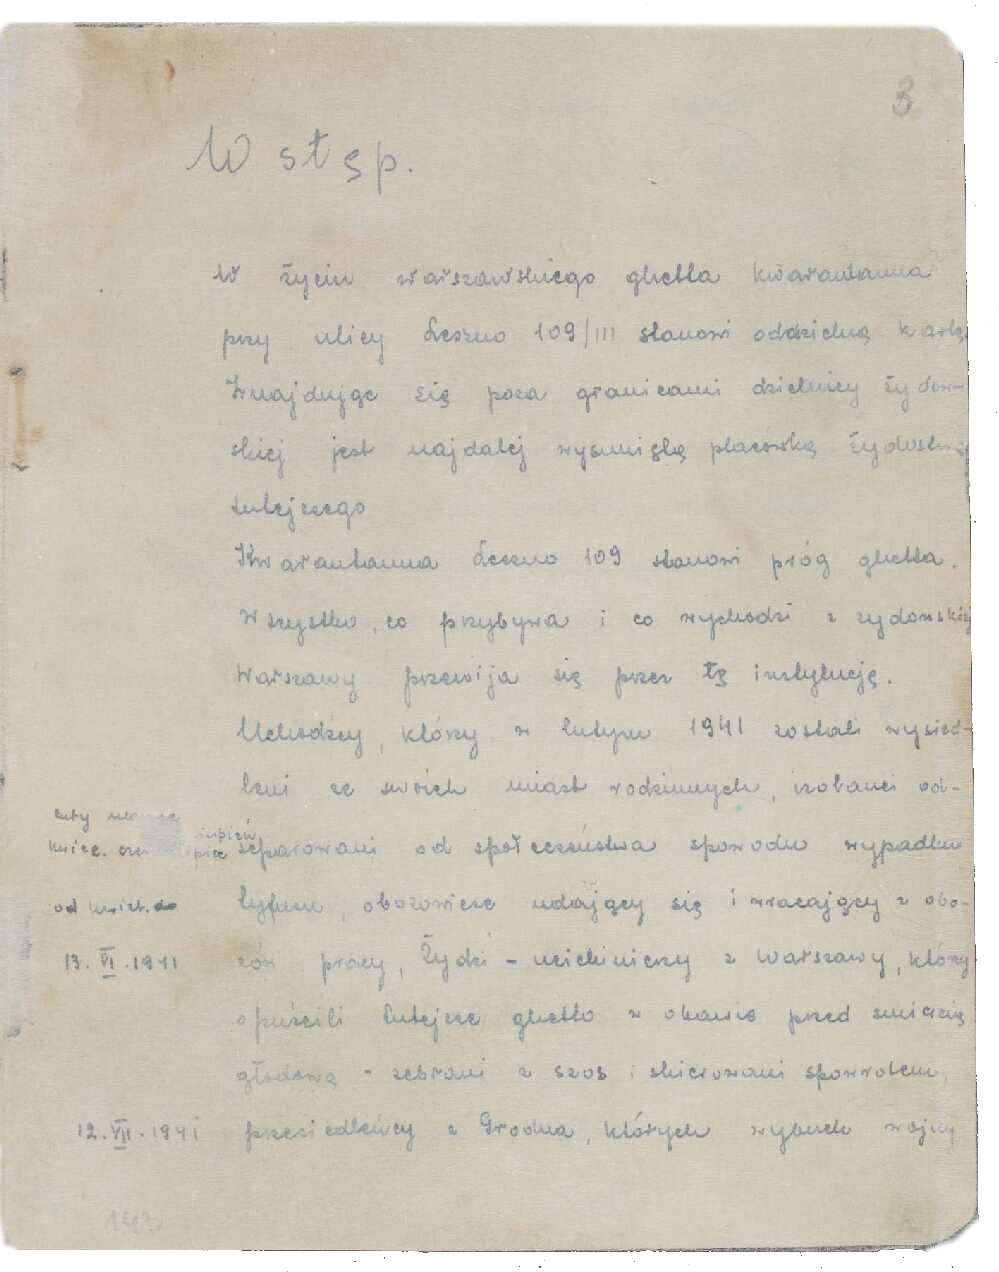 3
Wstęp.
W życiu warszawskiego ghetta kwarantanna
przy ulicy Leszno 109/III stanowi oddzielną kartę
Znajdując się poza granicami dzielnicy żydow-
skiej jest najdalej wysuniętą placówką żydostwa
tutejszego
Kwarantanna Leszno 109 stanowi próg ghetta.
Wszystko, co przybywa i co wychodzi z żydowskiej
Warszawy przewija się przez tę instytucję.
Uchodźcy, którzy w lutym 1941 zostali wysied-
leni ze swoich miast rodzinnych, izolanci od-
luty
kwiec.
separowani od społeczeństwa spowodu wypadku
od kwiet. do
tyfusu, obozowicze udający się i wracający z obo-
13.VI.1941
zów pracy, Żydzi - uciekinierzy z Warszawy, którzy
opuścili tutejsze ghetto w obawie przed śmiercią
głodową - zebrani z szos i skierowani spowrotem,
12.VII.1941
przesiedleńcy z Grodna, których wybuch wojny
193